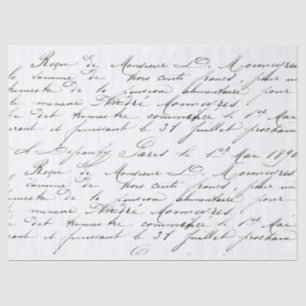 Reçu de Monsieur D. Monneyres
la somme de trois cents francs, pour un
trimestre de la pension alimentaire pour
le mineur André Monneyres,
le dit trimestre commence le 1er Mai
et finissant le 31 Juillet prochain
Paris le 1er Mai 1890
Reçu de Monsieur D. Monneyres
la somme de trois cents francs, pour un
trimestre de la pension alimentaire pour
le mineur André Monneyres.
le dit trimestre commence le 1er Mai
et finissant le 31 Juillet prochain